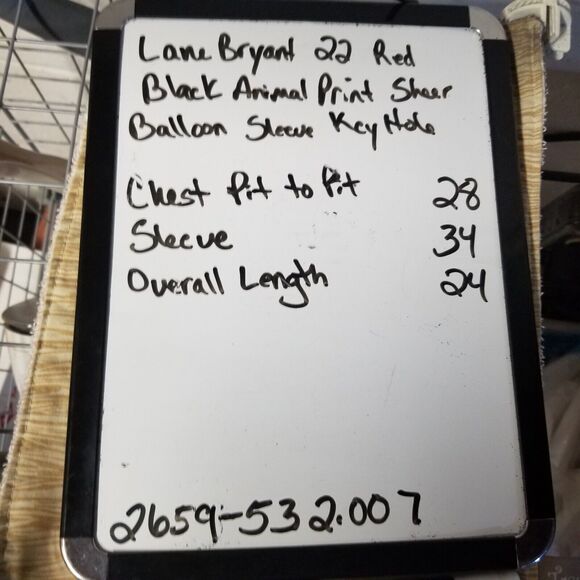 Lane Bryant 22 Red
Black Animal Print Sheer
Balloon Sleeve Key Hole
Chest Pit to Pit 28
Sleeve 34
Overall Length 24
2659-532.007